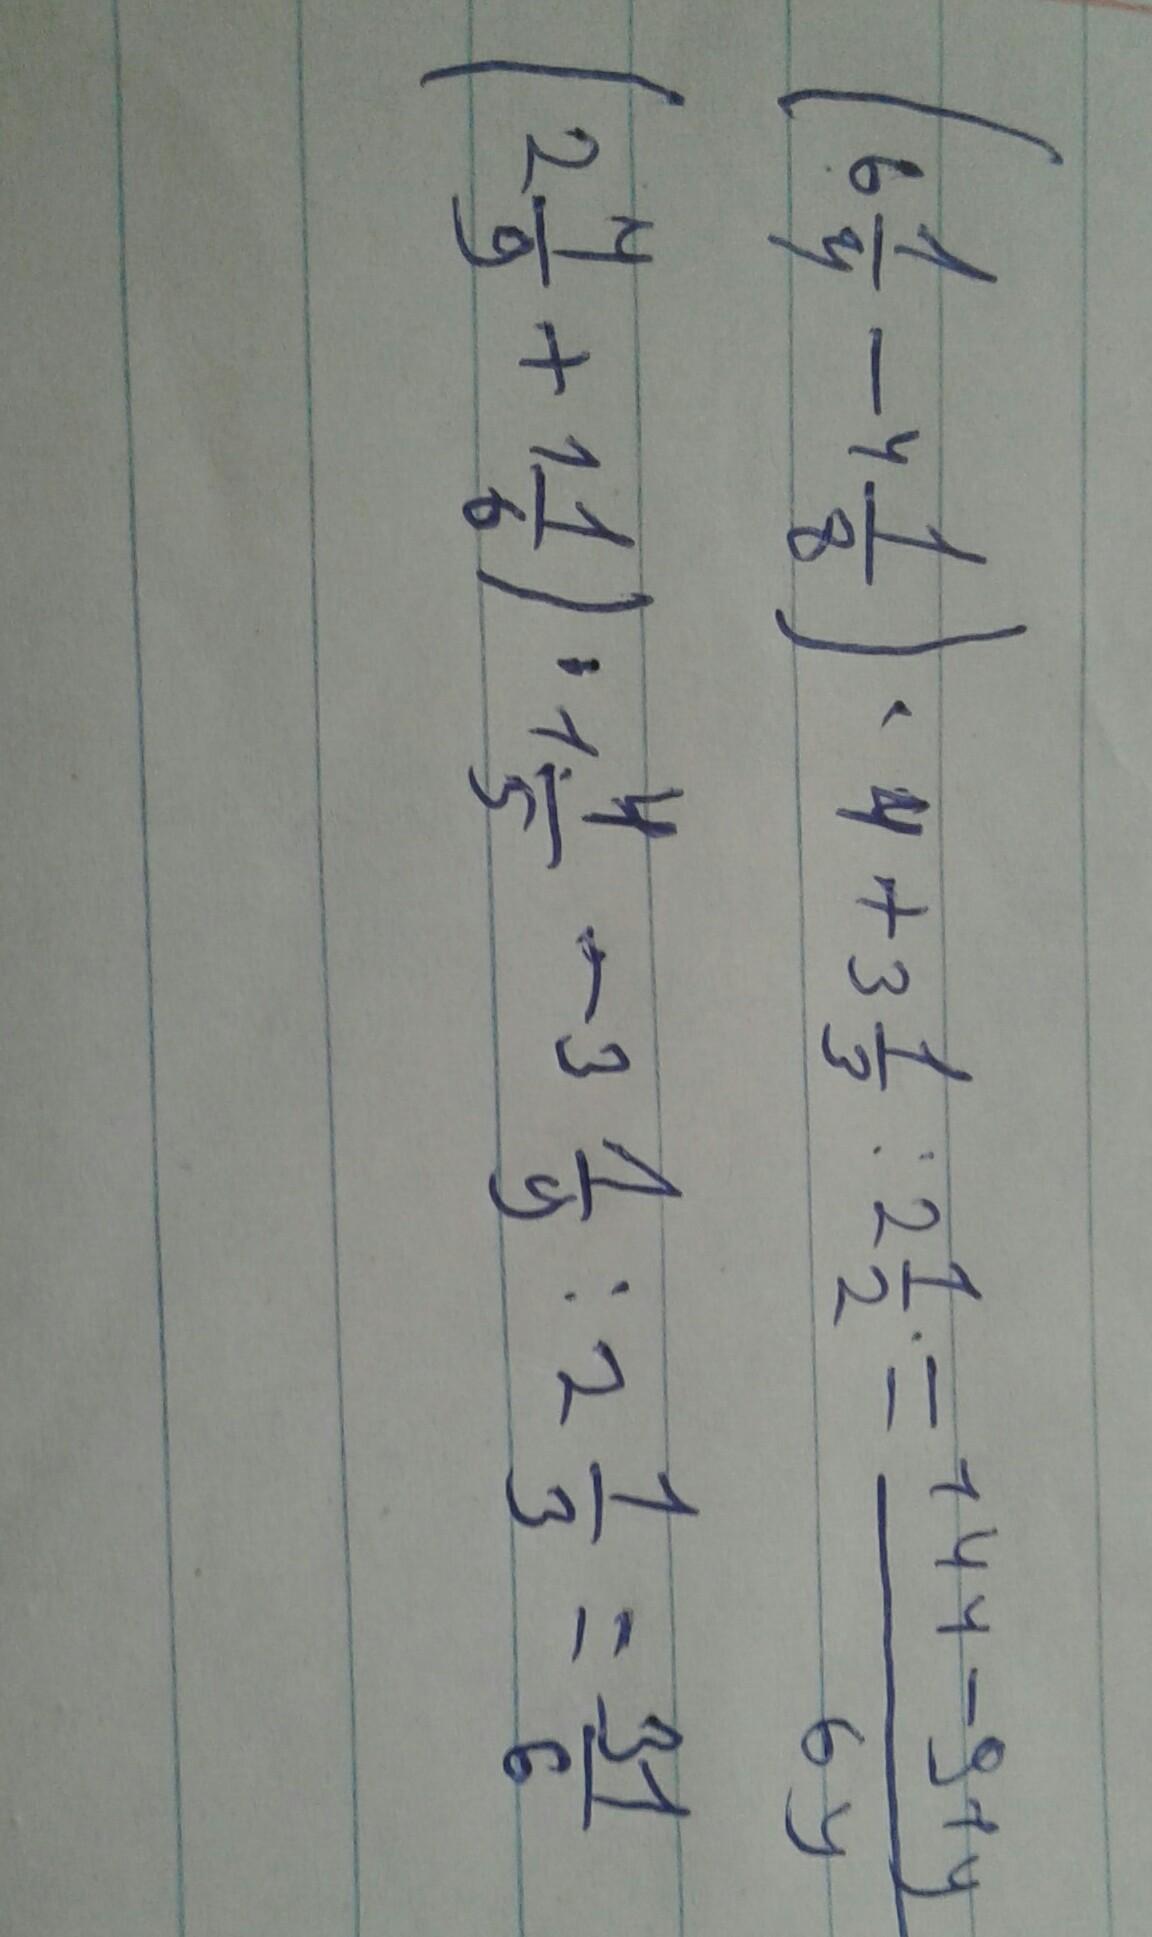 (6 1/y − 4 1/8) · 4 + 3 1/3 : 2 1/2 = (144−91y)/6y
(2 4/9 + 1 1/6) · 1 4/5 − 3 1/9 : 2 1/3 = 31/6